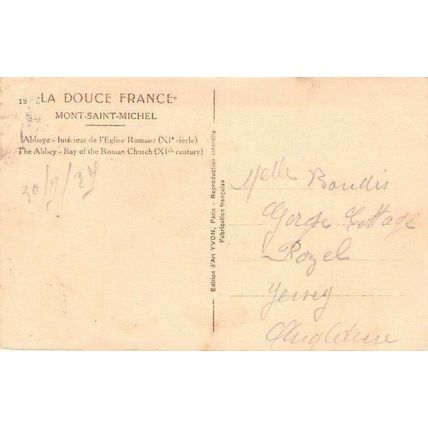 19 "LA DOUCE FRANCE"
MONT-SAINT-MICHEL
Abbaye - Intérieur de l'Eglise Romane (XIe siècle)
The Abbey - Bay of the Roman Church (XIth century)
Edition d'Art YVON, Paris - Reproduction interdite
Fabrication française
Melle Baudis
Gorse Cottage
Rozel
Jersey
Angleterre